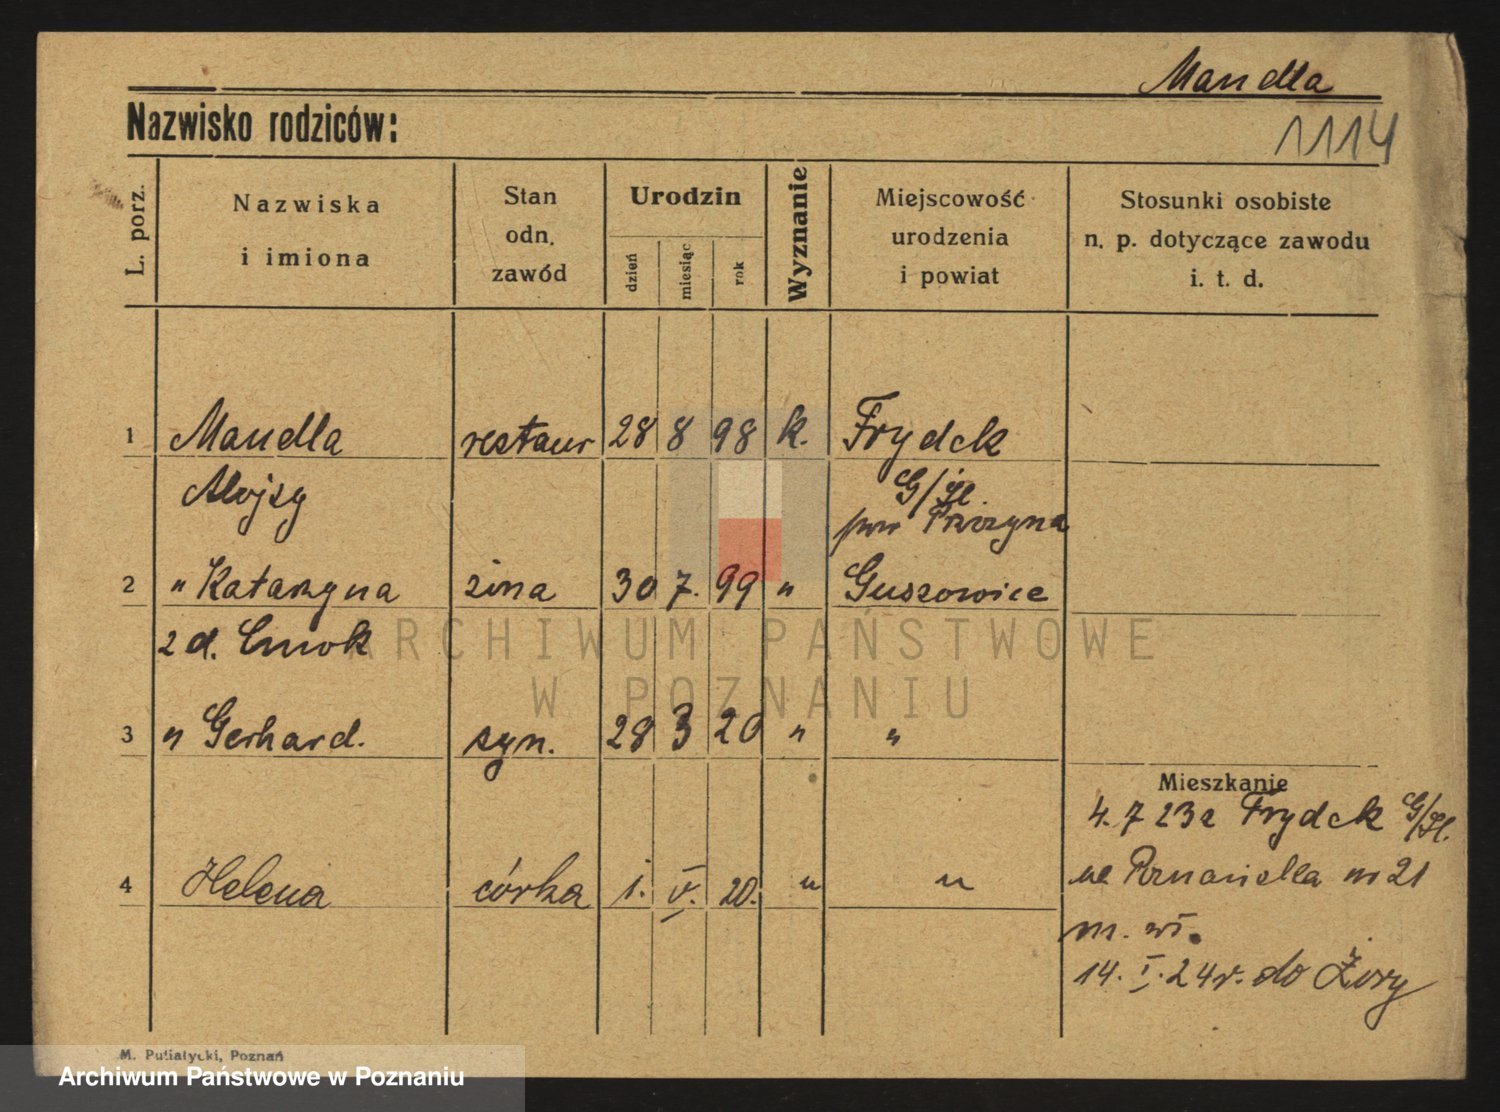 Mandla
Nazwisko rodziców:
1114
L. porz.
Nazwiska
i imiona
Stan
odn.
zawód
Urodzin
dzień
miesiąc
rok
Wyznanie
Miejscowość
urodzenia
i powiat
Stosunki osobiste
n. p. dotyczące zawodu
i. t. d.
1 Mandla restaur 28 8 98 k. Frydek
Alojzy G/Śl.
pow
2 " Katarzyna żona 30 7. 99 " Guszowice
z d. Cmok
3 " Gerhard. syn. 28 3 20 " "
Mieszkanie
4. 7 23 z Frydek G/Śl.
4 Helena córka 1. V. 20. " "
nr 21
m. wł.
14. I. 24 r. do Żory
ARCHIWUM PAŃSTWOWE
W POZNANIU
M. Putiatycki, Poznań
Archiwum Państwowe w Poznaniu